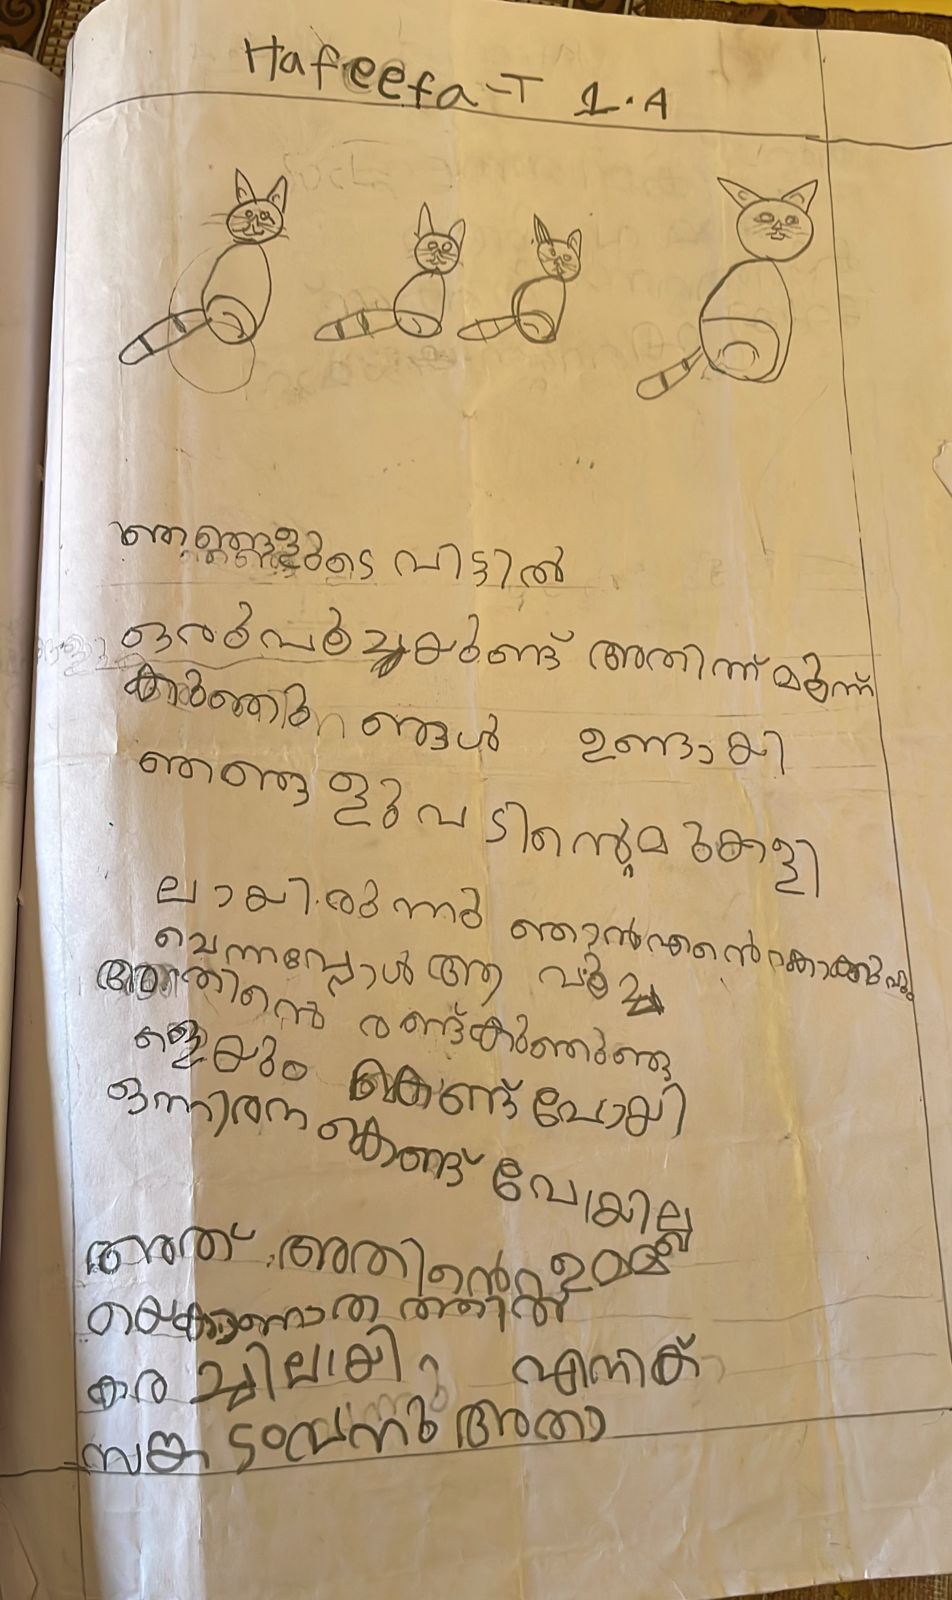 Hafeefa-T 1.A
ഞങ്ങളുടെ വിട്ടിൽ
ഒരുപൂച്ചയുണ്ട് അതിന്ന് മൂന്ന്
കുഞ്ഞിങ്ങൾ ഉണ്ടായി
ഞങ്ങളു വടിൻ്റെ മുകളി
ലായിരുന്നു ഞാൻ എൻ്റെ
ചെന്നപ്പോൾ ആ പൂച്ച
അതിൻ്റെ രണ്ട്കുഞ്ഞുങ്ങ
ളെയും കെണ്ട് പോയി
ഒന്നിനെ കെണ്ട് പേയില്ല
അത് അതിൻ്റെ ഉമ്മ
യെകാണാത്തതിൽ
കരച്ചിലായി എനിക്
സങ്കടംവന്നു അതാ